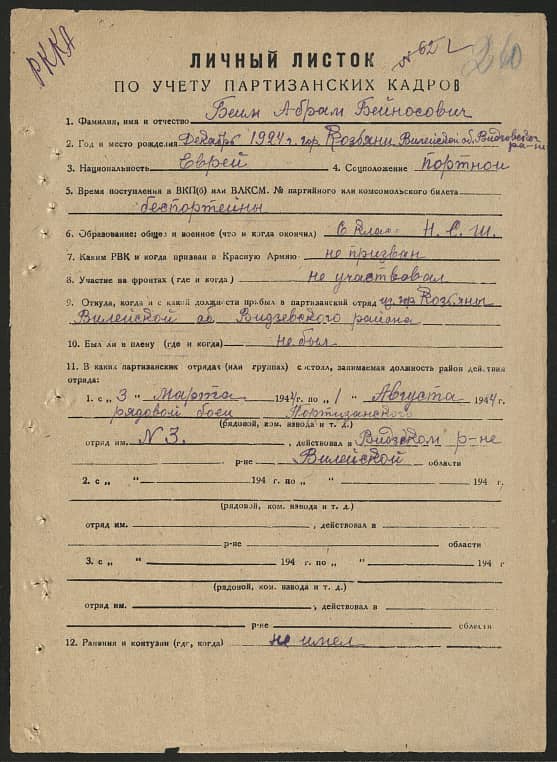 РККА
N 62
260
ЛИЧНЫЙ ЛИСТОК
ПО УЧЕТУ ПАРТИЗАНСКИХ КАДРОВ
1. Фамилия, имя и отчество Беим Абрам Бейносович
2. Год и место рождения Декабрь 1924 г. гор. Козьяни Вилейской об. Видзовского
ра-на
3. Национальность Еврей 4. Соцположение портной
5. Время поступления в ВКП(б) или ВЛКСМ. № партийного или комсомольского билета
беспортейны
6. Образование: общее и военное (что и когда окончил) 6 клас Н. С. Ш.
7. Каким РВК и когда призван в Красную Армию не призван
8. Участие на фронтах (где и когда) не участвовал
9. Откуда, когда и с какой должности прибыл в партизанский отряд из гор Козьяны
Вилейской об Видзевского района
10. Был ли в плену (где и когда) не был
11. В каких партизанских отрядах (или группах) состоял, занимаемая должность район действия
отряда:
1. с „ 3 " Марта 1944 г. по „ 1 " Августа 1944 г.
рядовой боец Портизанского
(рядовой, ком. взвода и т. д.)
отряд им. N 3. , действовал в Видзском р-не
р-не Вилейской области
2. с „ " 194 г. по „ " 194 г.
(рядовой, ком. взвода и т. д.)
отряд им. , действовал в
р-не области
3. с „ " 194 г. по „ " 194 г
(рядовой, ком. взвода и т. д.)
отряд им. , действовал в
р-не области
12. Ранения и контузии (где, когда) не имел